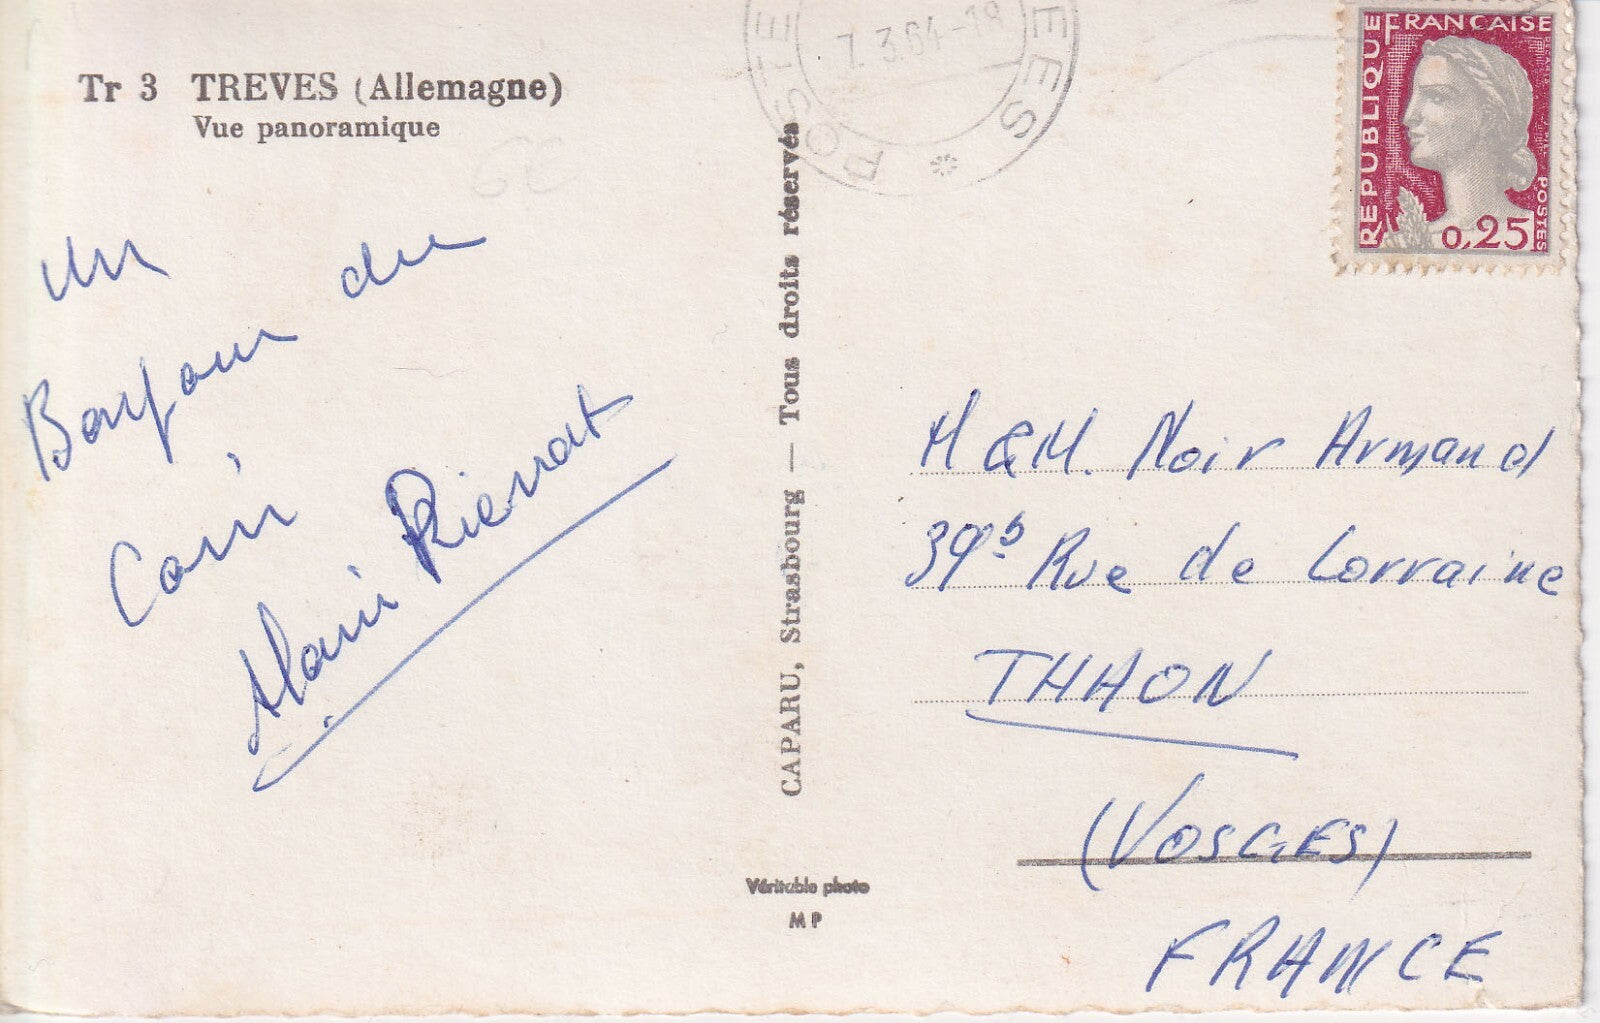 Tr 3 TREVES (Allemagne)
Vue panoramique
Un
Bonjour du
Alain Pierrat
CAPARU, Strasbourg — Tous droits réservés
Véritable photo
M P
POSTE
7.3.64-18
REPUBLIQUE
FRANCAISE
POSTES
0,25
M & M. Noir Armand
39b Rue de Lorraine
THAON
(VOSGES)
FRANCE